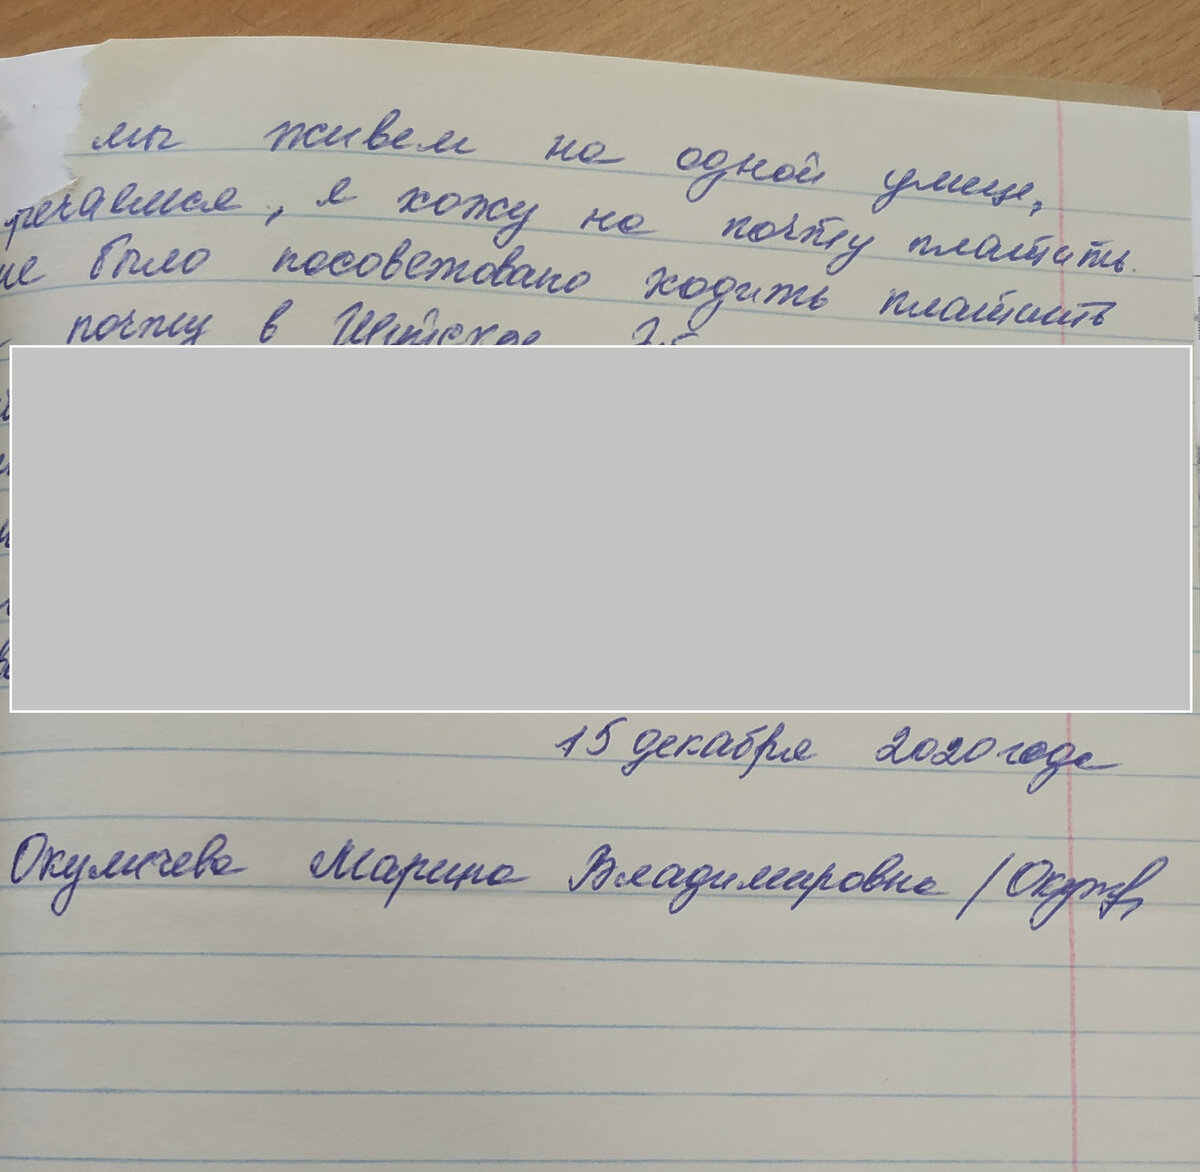 мы живем на одной улице,
речаемся, я хожу на почту платить.
не было посоветовано ходить платить
почту в
15 декабря 2020 года
Окуличева Марина Владимировна /